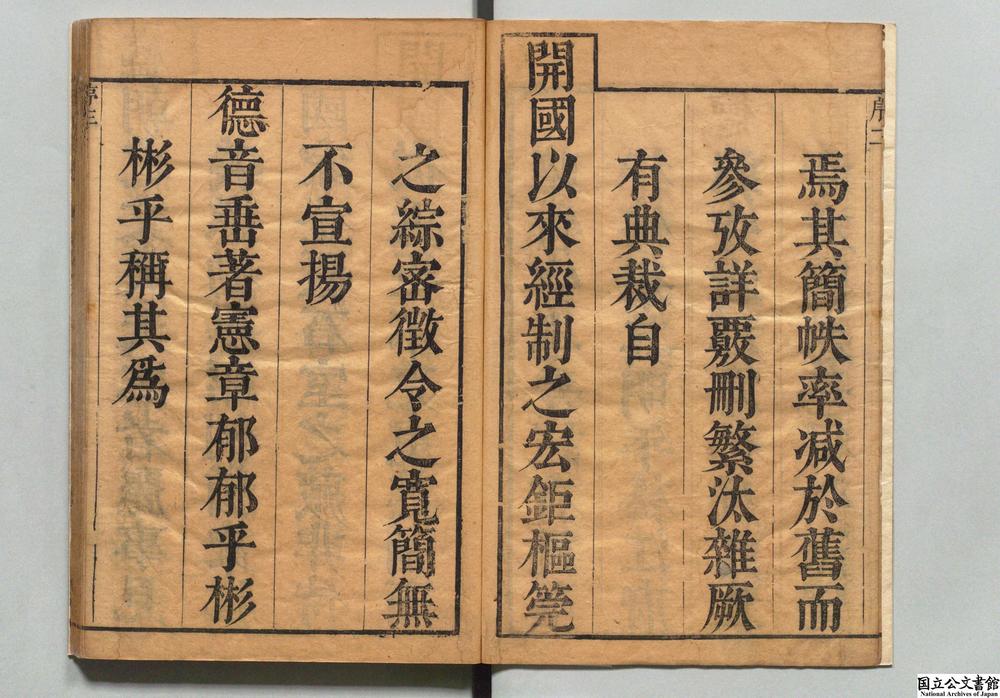 焉其簡帙率减於舊而
參攷詳覈刪繁汰雜厥
有典裁自
開國以來經制之宏鉅樞筦
之綜密徵令之寬簡無
不宣揚
德音垂著憲章郁郁乎彬
彬乎稱其爲
序二
序三
国立公文書館
National Archives of Japan